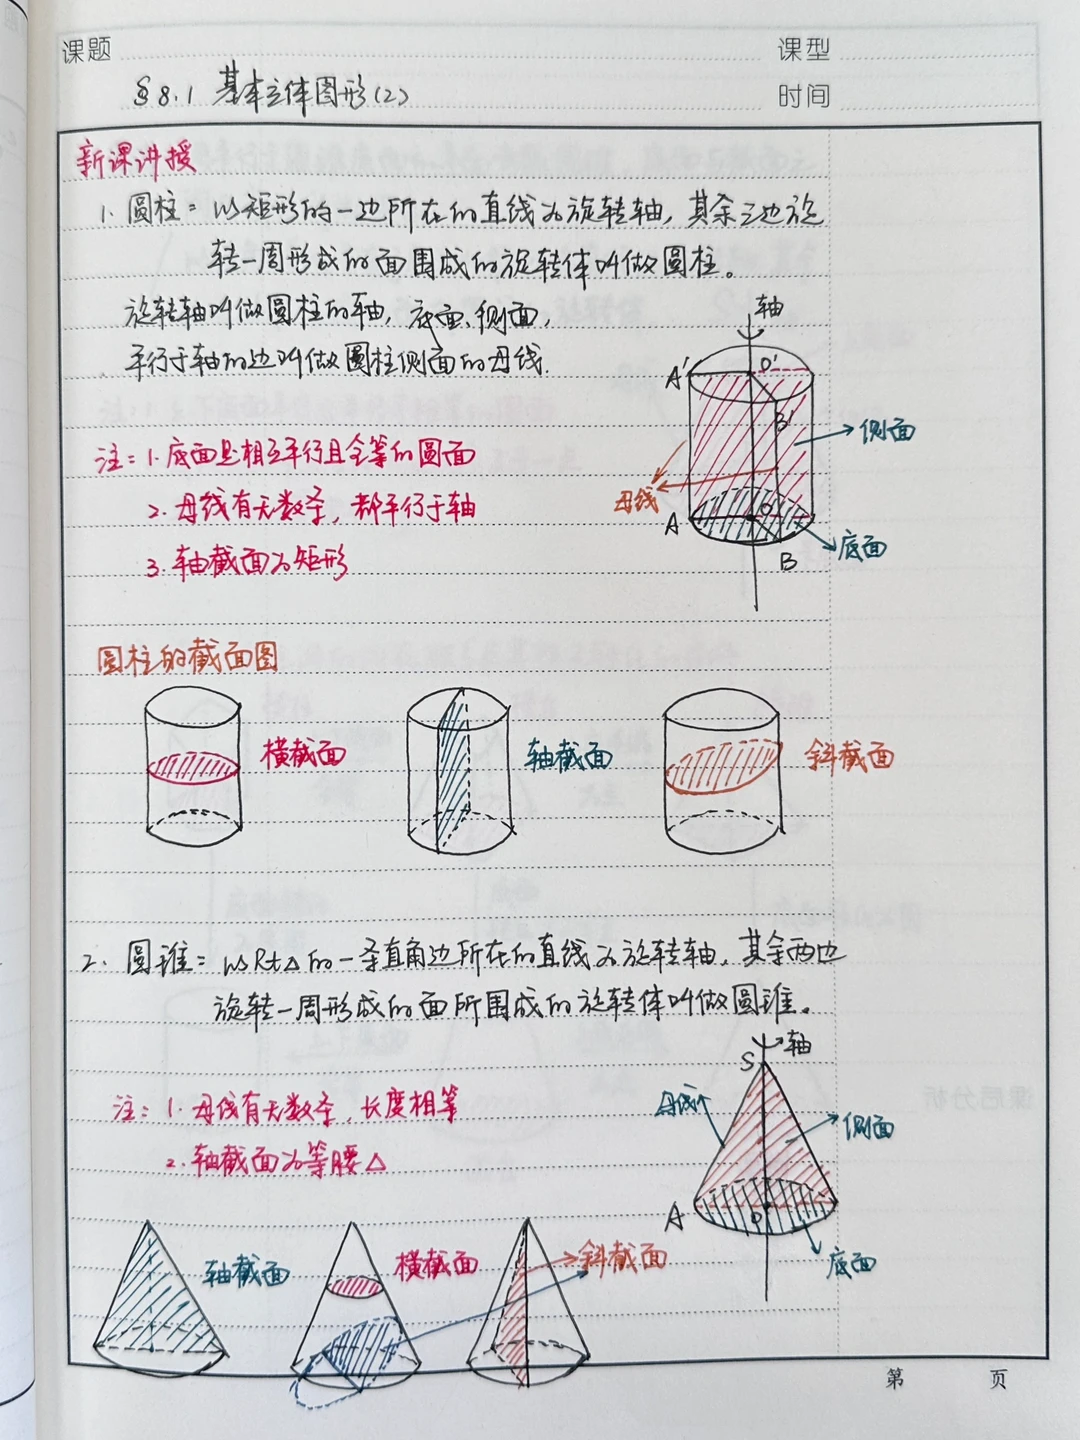 课题
课型
§8.1 基本立体图形(2)
时间
新课讲授
1. 圆柱：以矩形的一边所在的直线为旋转轴，其余三边旋
转一周形成的面围成的旋转体叫做圆柱。
旋转轴叫做圆柱的轴，底面、侧面，
平行于轴的边叫做圆柱侧面的母线.
轴
A'
O'
B'
侧面
母线
A
O
B
底面
注：1. 底面是相互平行且全等的圆面
2. 母线有无数条，都平行于轴
3. 轴截面为矩形
圆柱的截面图
横截面
轴截面
斜截面
2. 圆锥：以Rt△的一条直角边所在的直线为旋转轴，其余两边
旋转一周形成的面所围成的旋转体叫做圆锥。
S
轴
母线
侧面
A
O
底面
注：1. 母线有无数条，长度相等
2. 轴截面为等腰△
轴截面
横截面
斜截面
课后分析
第 页